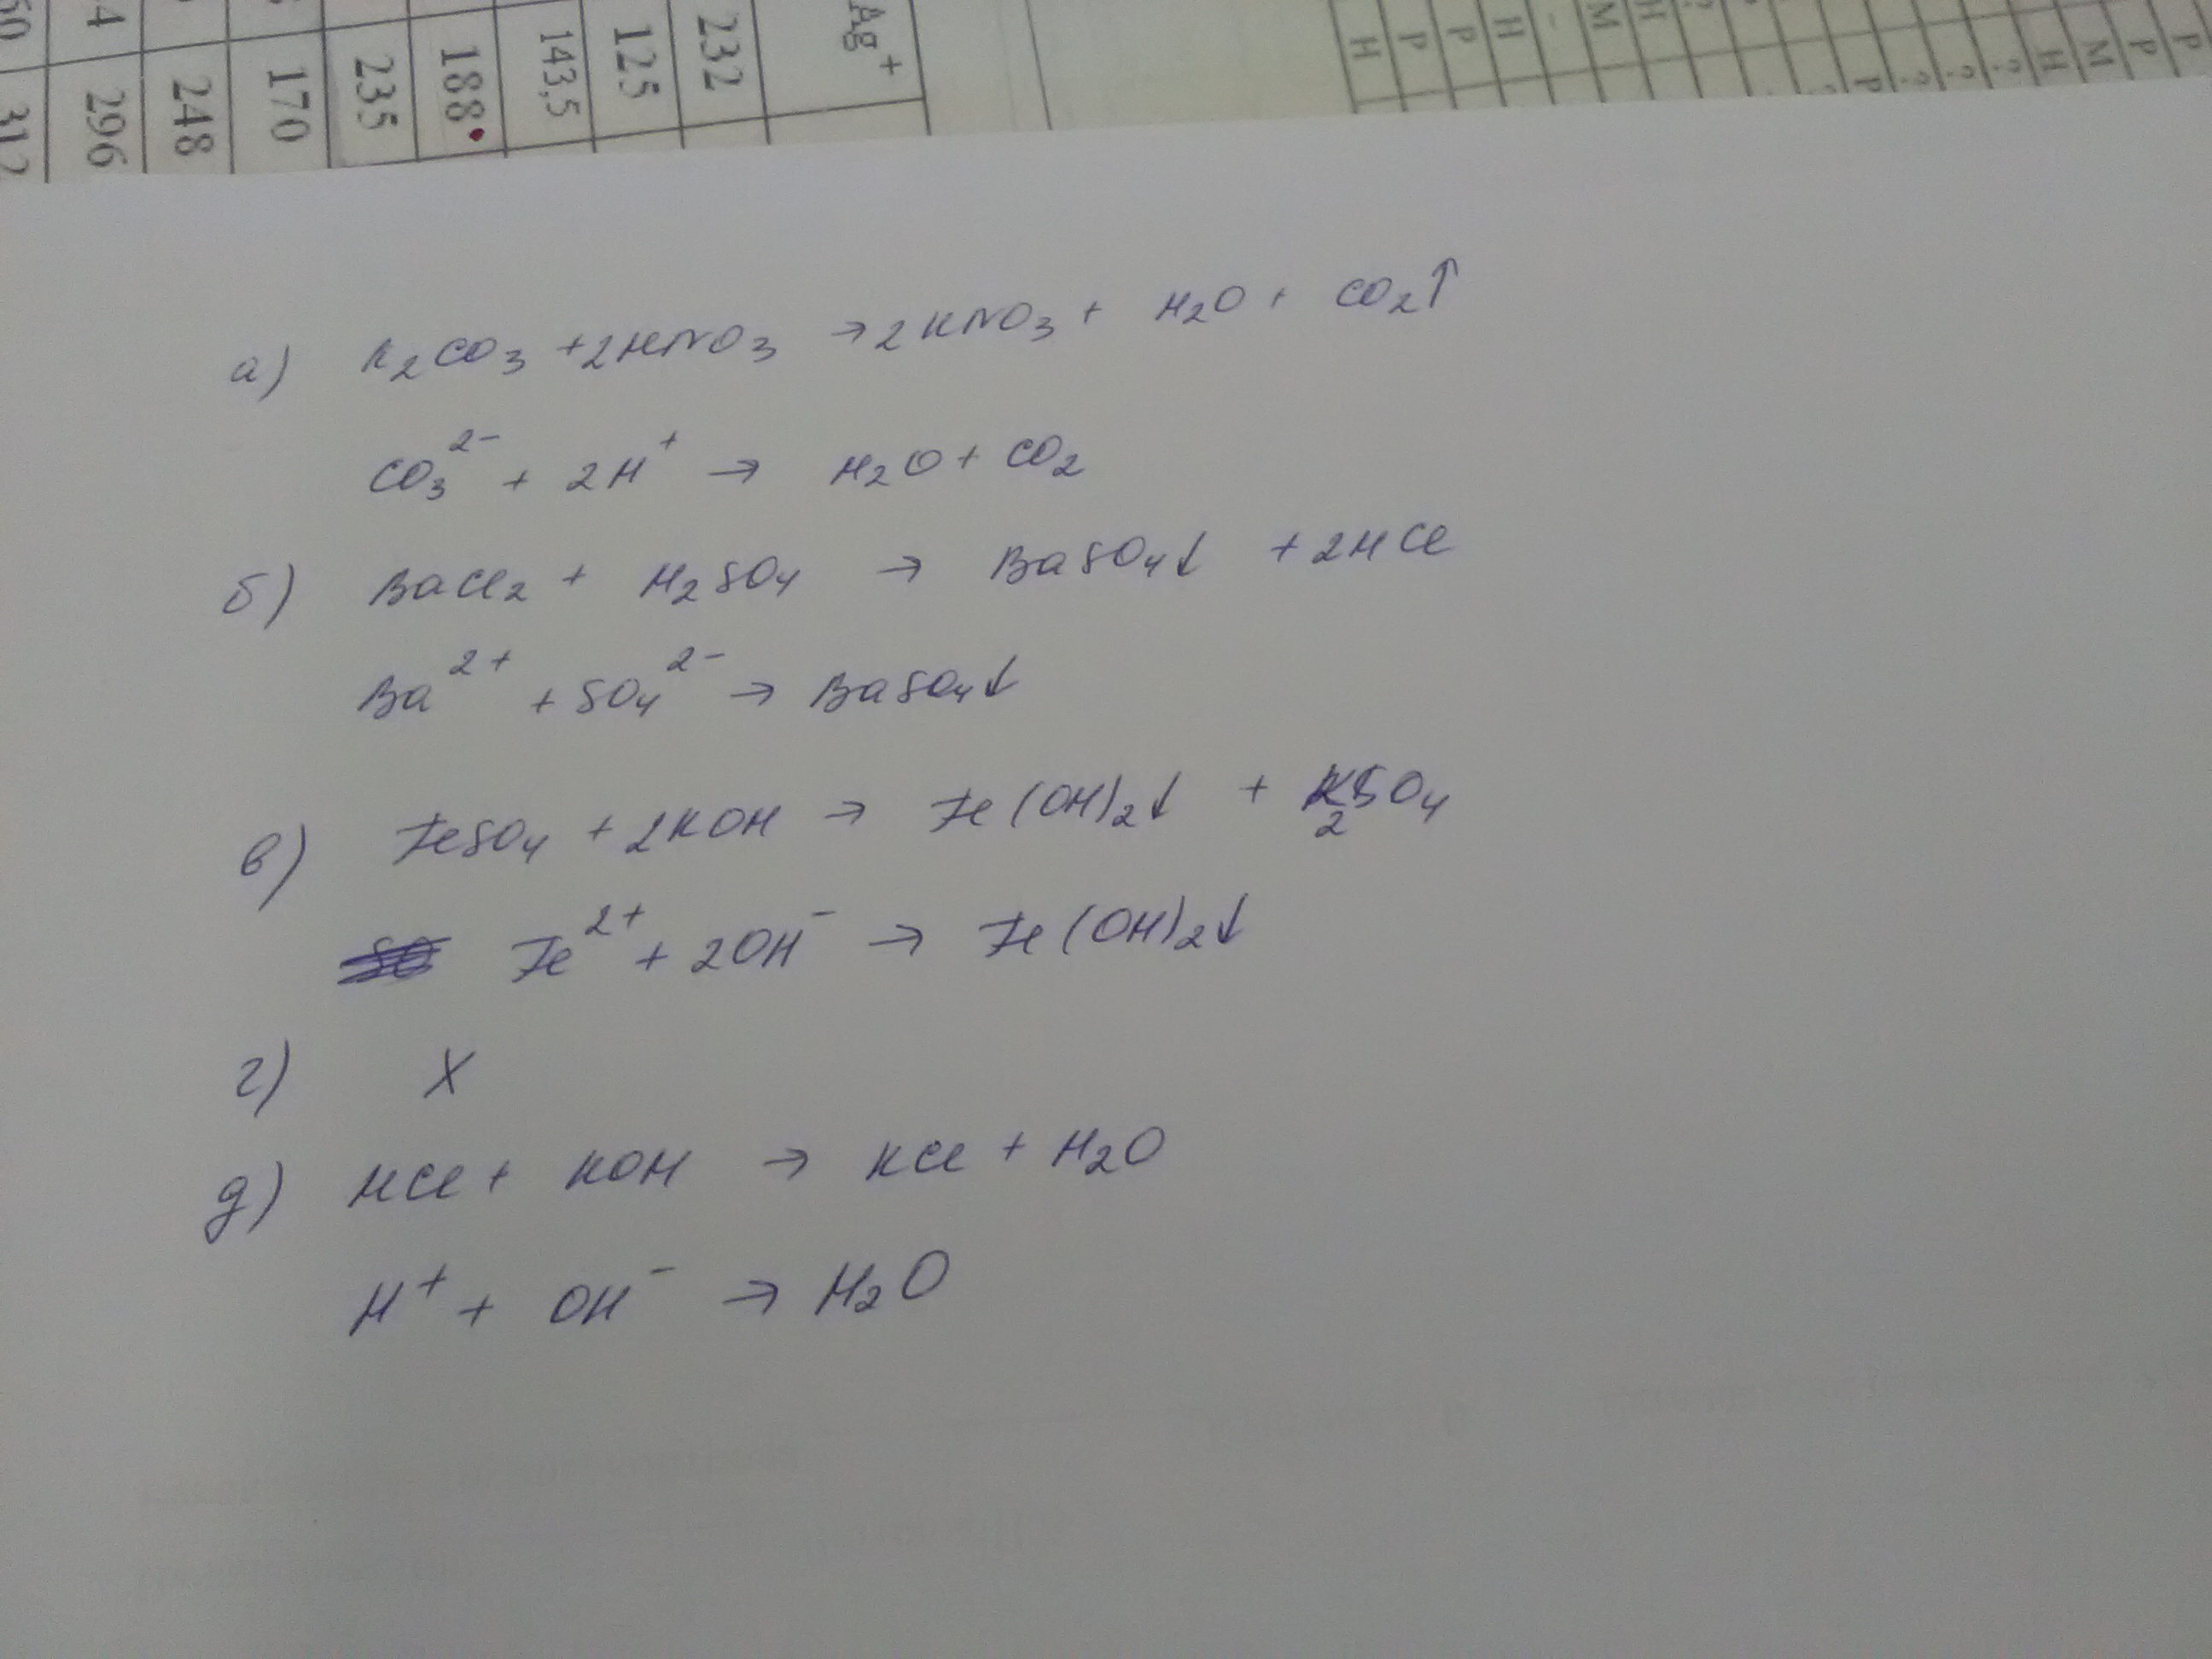 Ag⁺
232
125
143,5
188
235
170
248
296
312
4
50
Н Р Р Н - М Н ?
Р ? ? ? Н М Р Р
а) K₂CO₃ + 2HNO₃ → 2KNO₃ + H₂O + CO₂↑
CO₃²⁻ + 2H⁺ → H₂O + CO₂
б) BaCl₂ + H₂SO₄ → BaSO₄↓ + 2HCl
Ba²⁺ + SO₄²⁻ → BaSO₄↓
в) FeSO₄ + 2KOH → Fe(OH)₂↓ + K₂SO₄
Fe²⁺ + 2OH⁻ → Fe(OH)₂↓
г) X
д) HCl + KOH → KCl + H₂O
H⁺ + OH⁻ → H₂O